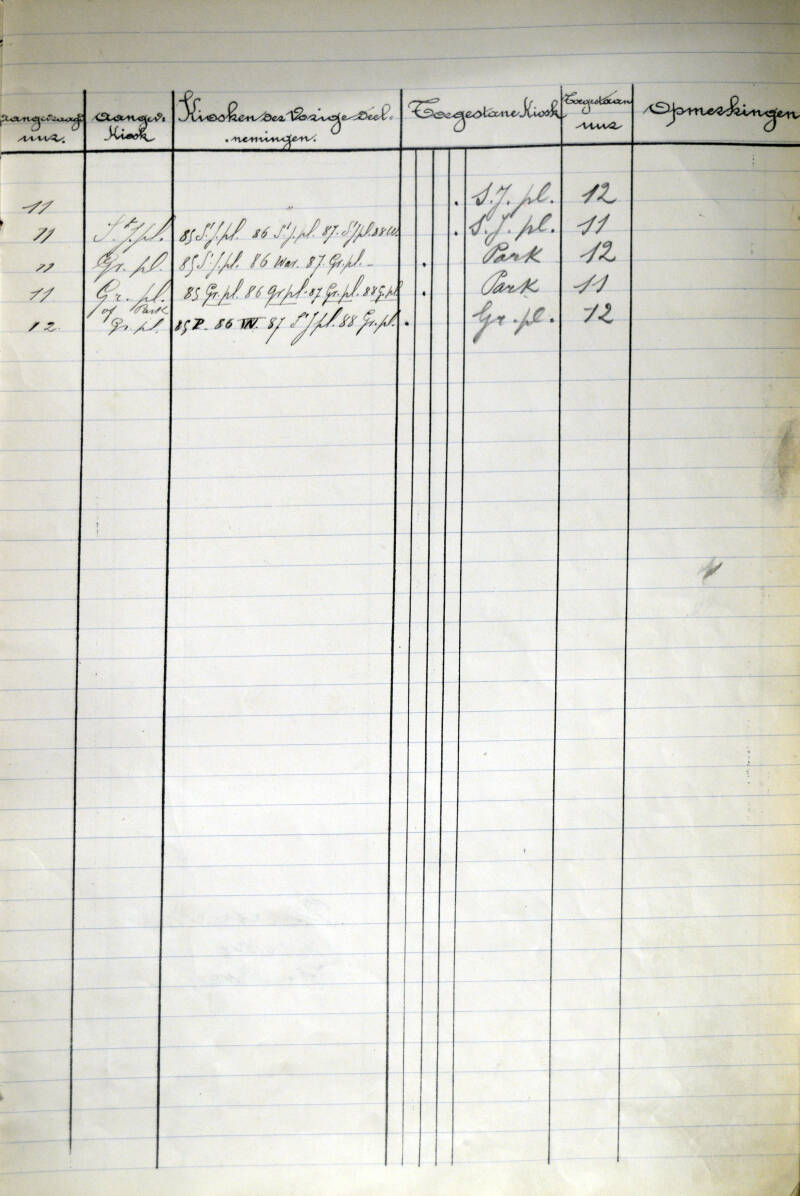 Aangevraagd uur. Aangev. Kiosk Kiosken der Vorige Deel-nemingen. Toegestane Kiosk Toegestaan uur Opmerkingen
11 " . S.J. pl. 12
11 St Jpl. 85 St J.pl. 86 St J.pl. 87. St Jpl 88 W. . S.J. pl. 11
11 Gr. pl. 85 St J.pl. 86 War. 87 Gr.pl. . Park 12
11 Gr. pl. 85 Gr.pl. 86 Gr pl. 87 Gr.pl. 88 G.pl . Park 11
of Park
12 Gr. pl. 85 P. 86 W. 87 St J pl. 88 Gr.pl. . Gr. pl. 12